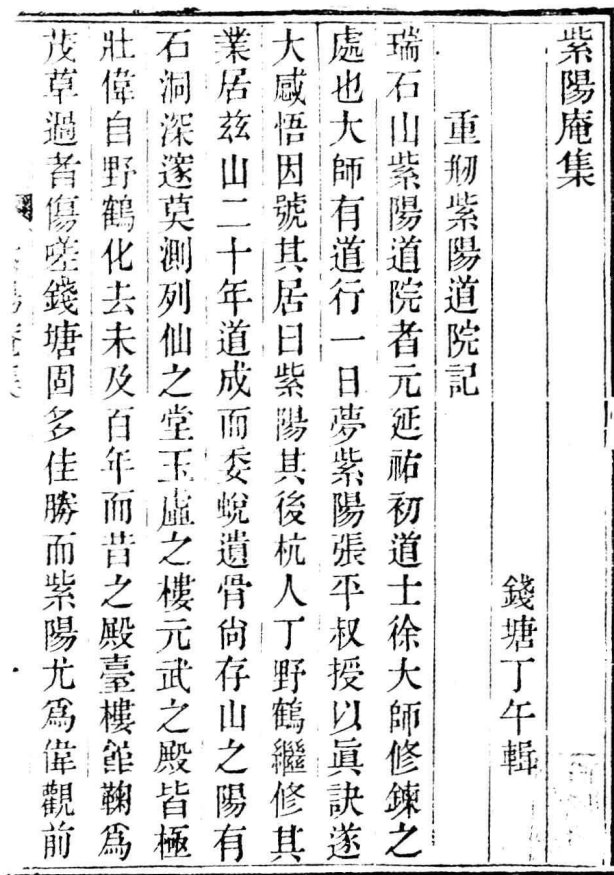 紫陽庵集
錢塘丁午輯
重刱紫陽道院記
瑞石山紫陽道院者元延祐初道士徐大師修鍊之
處也大師有道行一日夢紫陽張平叔授以眞訣遂
大感悟因號其居曰紫陽其後杭人丁野鶴繼修其
業居玆山二十年道成而委蛻遺骨尙存山之陽有
石洞深邃莫測列仙之堂玉虛之樓元武之殿皆極
壯偉自野鶴化去未及百年而昔之殿臺樓館鞠爲
茂草過者傷嗟錢塘固多佳勝而紫陽尤爲偉觀前